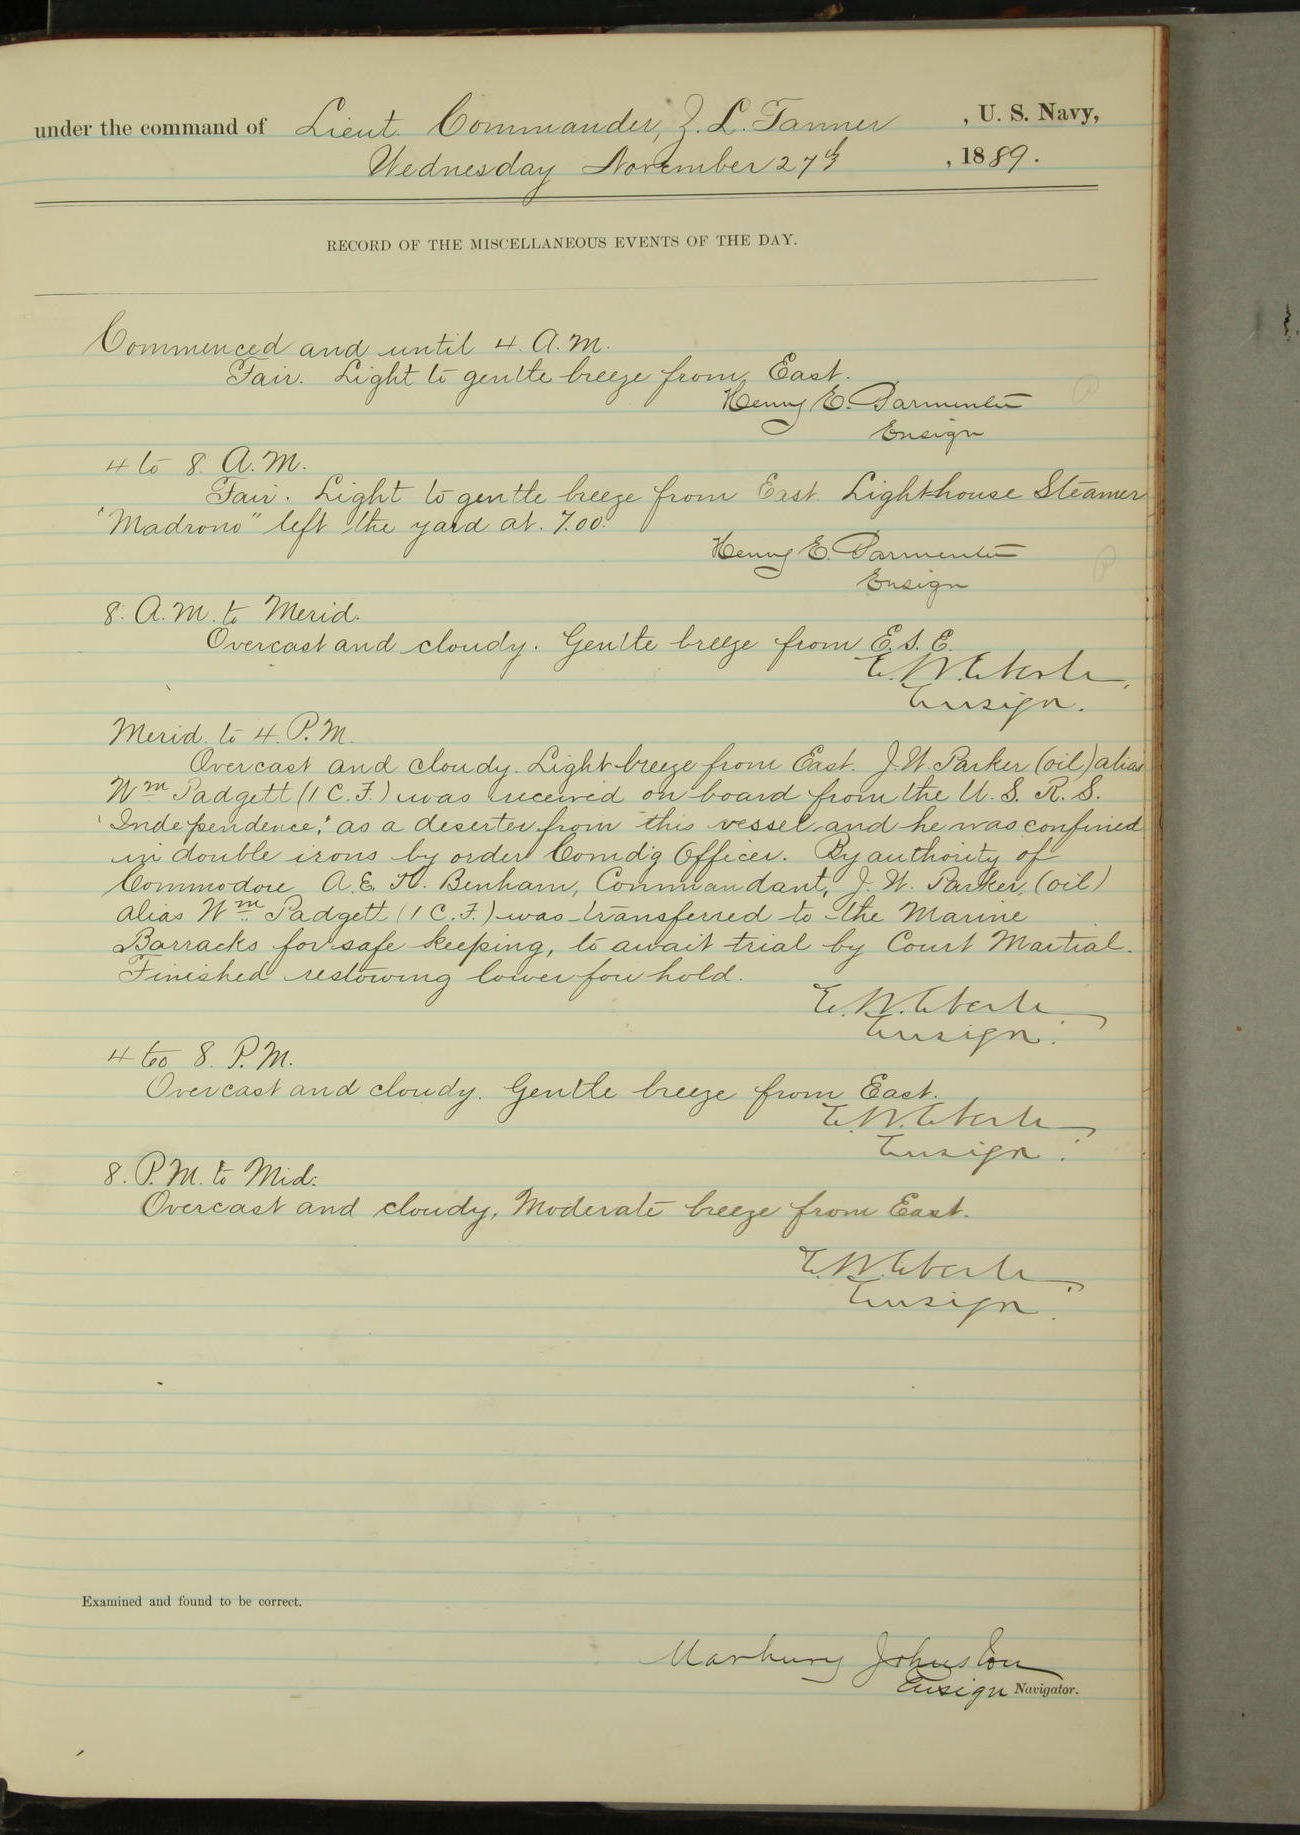 under the command of Lieut. Commander, Z. L. Tanner , U. S. Navy,
Wednesday November 27th , 1889.
RECORD OF THE MISCELLANEOUS EVENTS OF THE DAY.
Commenced and until 4 A.M.
Fair. Light to gentle breeze from East.
Henry E. Parmenter
Ensign
4 to 8 A.M.
Fair. Light to gentle breeze from East. Lighthouse Steamer
"Madrono" left the yard at 7.00.
Henry E. Parmenter
Ensign
8. A.M. to Merid.
Overcast and cloudy. Gentle breeze from E.S.E.
E. W. Eberle,
Ensign.
Merid. to 4 P.M.
Overcast and cloudy. Light breeze from East. J. W. Parker (oil) alias
Wm Padgett (1 C. F.) was received on board from the U. S. R. S.
"Independence," as a deserter from this vessel and he was confined
in double irons by order Comd'g Officer. By authority of
Commodore A. E. K. Benham, Commandant, J. W. Parker, (oil)
alias Wm Padgett (1 C. F.) was transferred to the Marine
Barracks for safe keeping, to await trial by Court Martial.
Finished restowing lower fore hold.
E. W. Eberle
Ensign.
4 to 8 P.M.
Overcast and cloudy. Gentle breeze from East.
E. W. Eberle
Ensign.
8. P.M. to Mid:
Overcast and cloudy, Moderate breeze from East.
E. W. Eberle
Ensign.
Examined and found to be correct.
Marbury Johnston
Ensign Navigator.